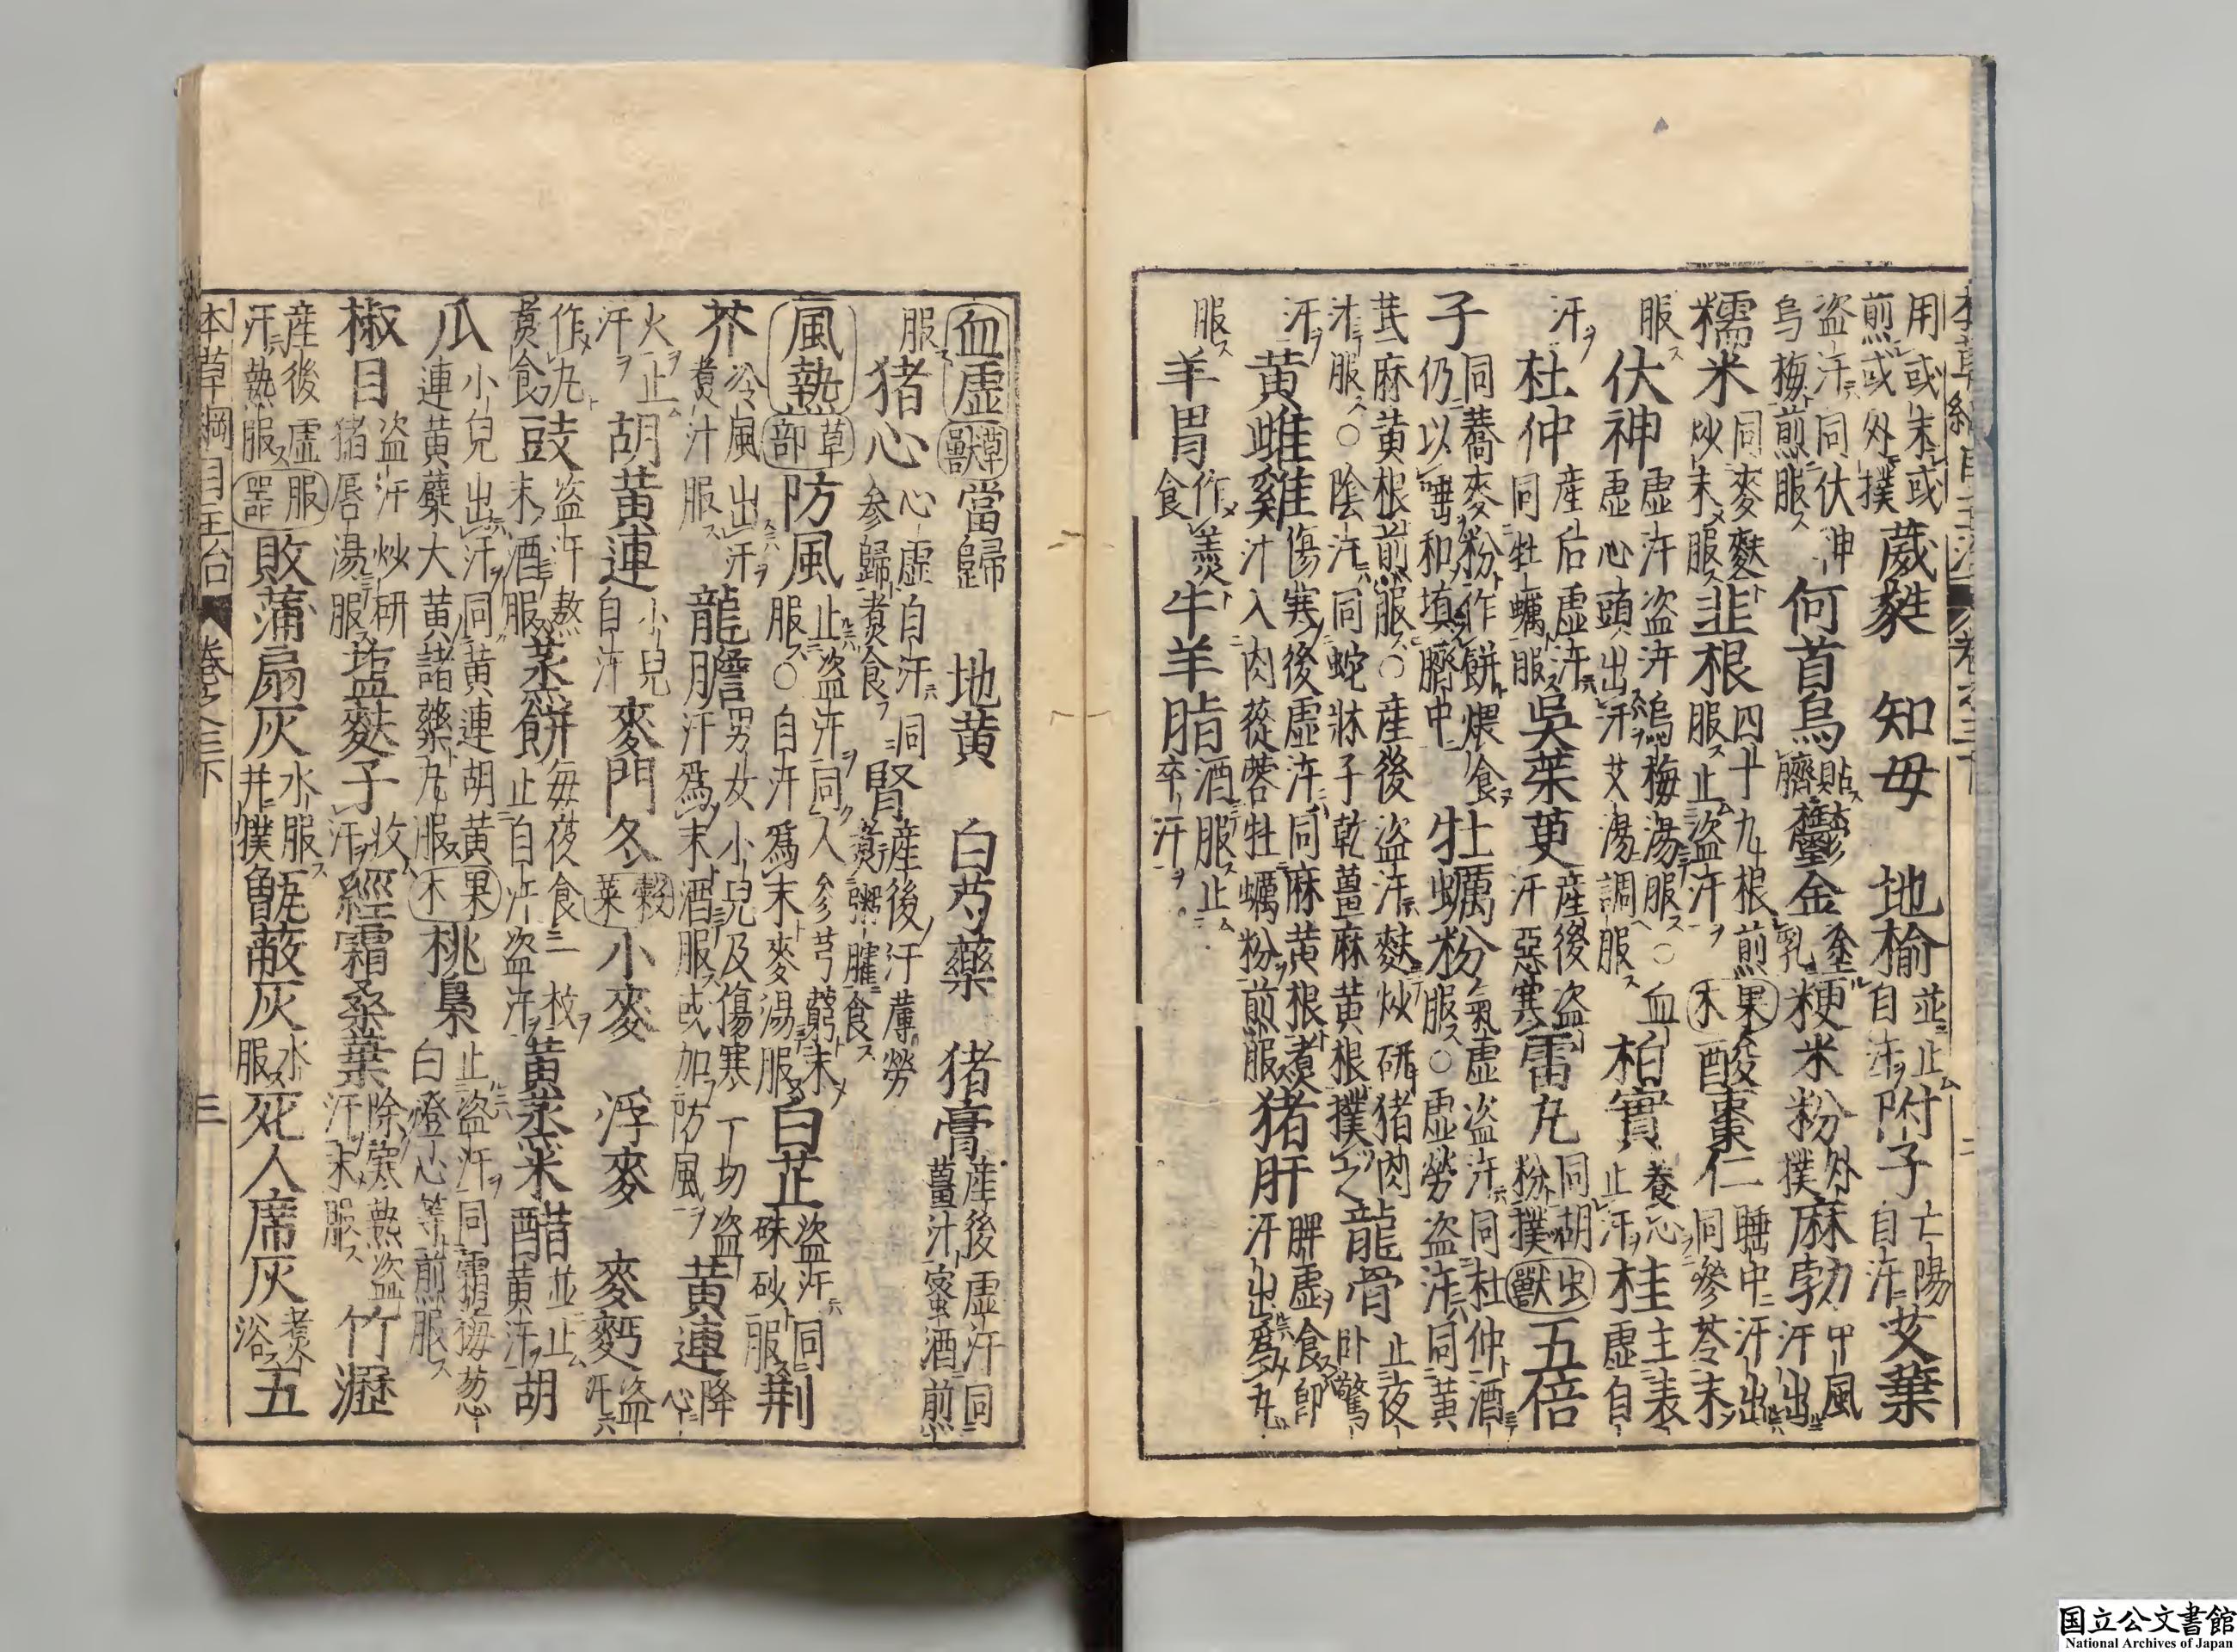 用或末或煎或外撲葳蕤　知母　地榆並止自汗附子亡陽自汗艾葉
盗汗同伏神烏梅煎服何首烏貼臍鬱金塗乳粳米粉外撲麻勃中風汗出
糯米同麥麩炒末服韭根四十九根煎服止盗汗果木酸棗仁睡中汗出同參苓末
服伏神虛汗盗汗烏梅湯服○血虛心頭出汗艾湯調服柏實養心止汗桂主表虛自
汗杜仲産后虛汗同牡蠣服吳茱萸産後盗汗惡寒雷丸同胡粉撲虫獸五倍
子同蕎麥粉作餅煨食仍以唾和塡臍中牡蠣粉氣虛盗汗同杜仲酒服○虛勞盗汗同黄
芪麻黄根煎服○産後盗汗麩炒研猪肉汁服○陰汗同蛇牀子乾薑麻黄根撲之龍骨止夜卧驚
汗黄雌雞傷寒後虛汗同麻黄根煮汁入肉蓯蓉牡蠣粉煎服猪肝脾虛食即汗出爲丸
服羊胃作羹食牛羊脂酒服止卒汗
血虛草獸當歸　地黄　白芍藥　猪膏産後虛汗同薑汁蜜酒煎
服猪心心虛自汗同參歸煮食腎産後汗蓐勞煮粥臛食
風熱草部防風止盗汗同人參芎藭末服○自汗爲末麥湯服白芷盗汗同硃砂服荆
芥冷風出汗煮汁服龍膽男女小兒及傷寒一切盗汗爲末酒服或加防風黄連降心
火止汗胡黄連小兒自汗麥門冬穀菜小麥　浮麥　麥麪盗汗
作丸煮食豉盗汗熬末酒服蒸餅每夜食一枚止自汗盗汗黄蒸米醋並止黄汗胡
瓜小兒出汗同黄連胡黄連黄蘗大黄諸藥丸服果木桃梟止盗汗同霜梅葱白燈心等煎服
椒目盗汗炒研猪唇湯服塩麩子收汗經霜桑葉除寒熱盗汗末服　竹瀝
産後虛汗熱服服器敗蒲扇灰水服并撲甑蔽灰水服死人席灰煮浴五
本草綱目主治　卷之三下　三
国立公文書館
National Archives of Japan